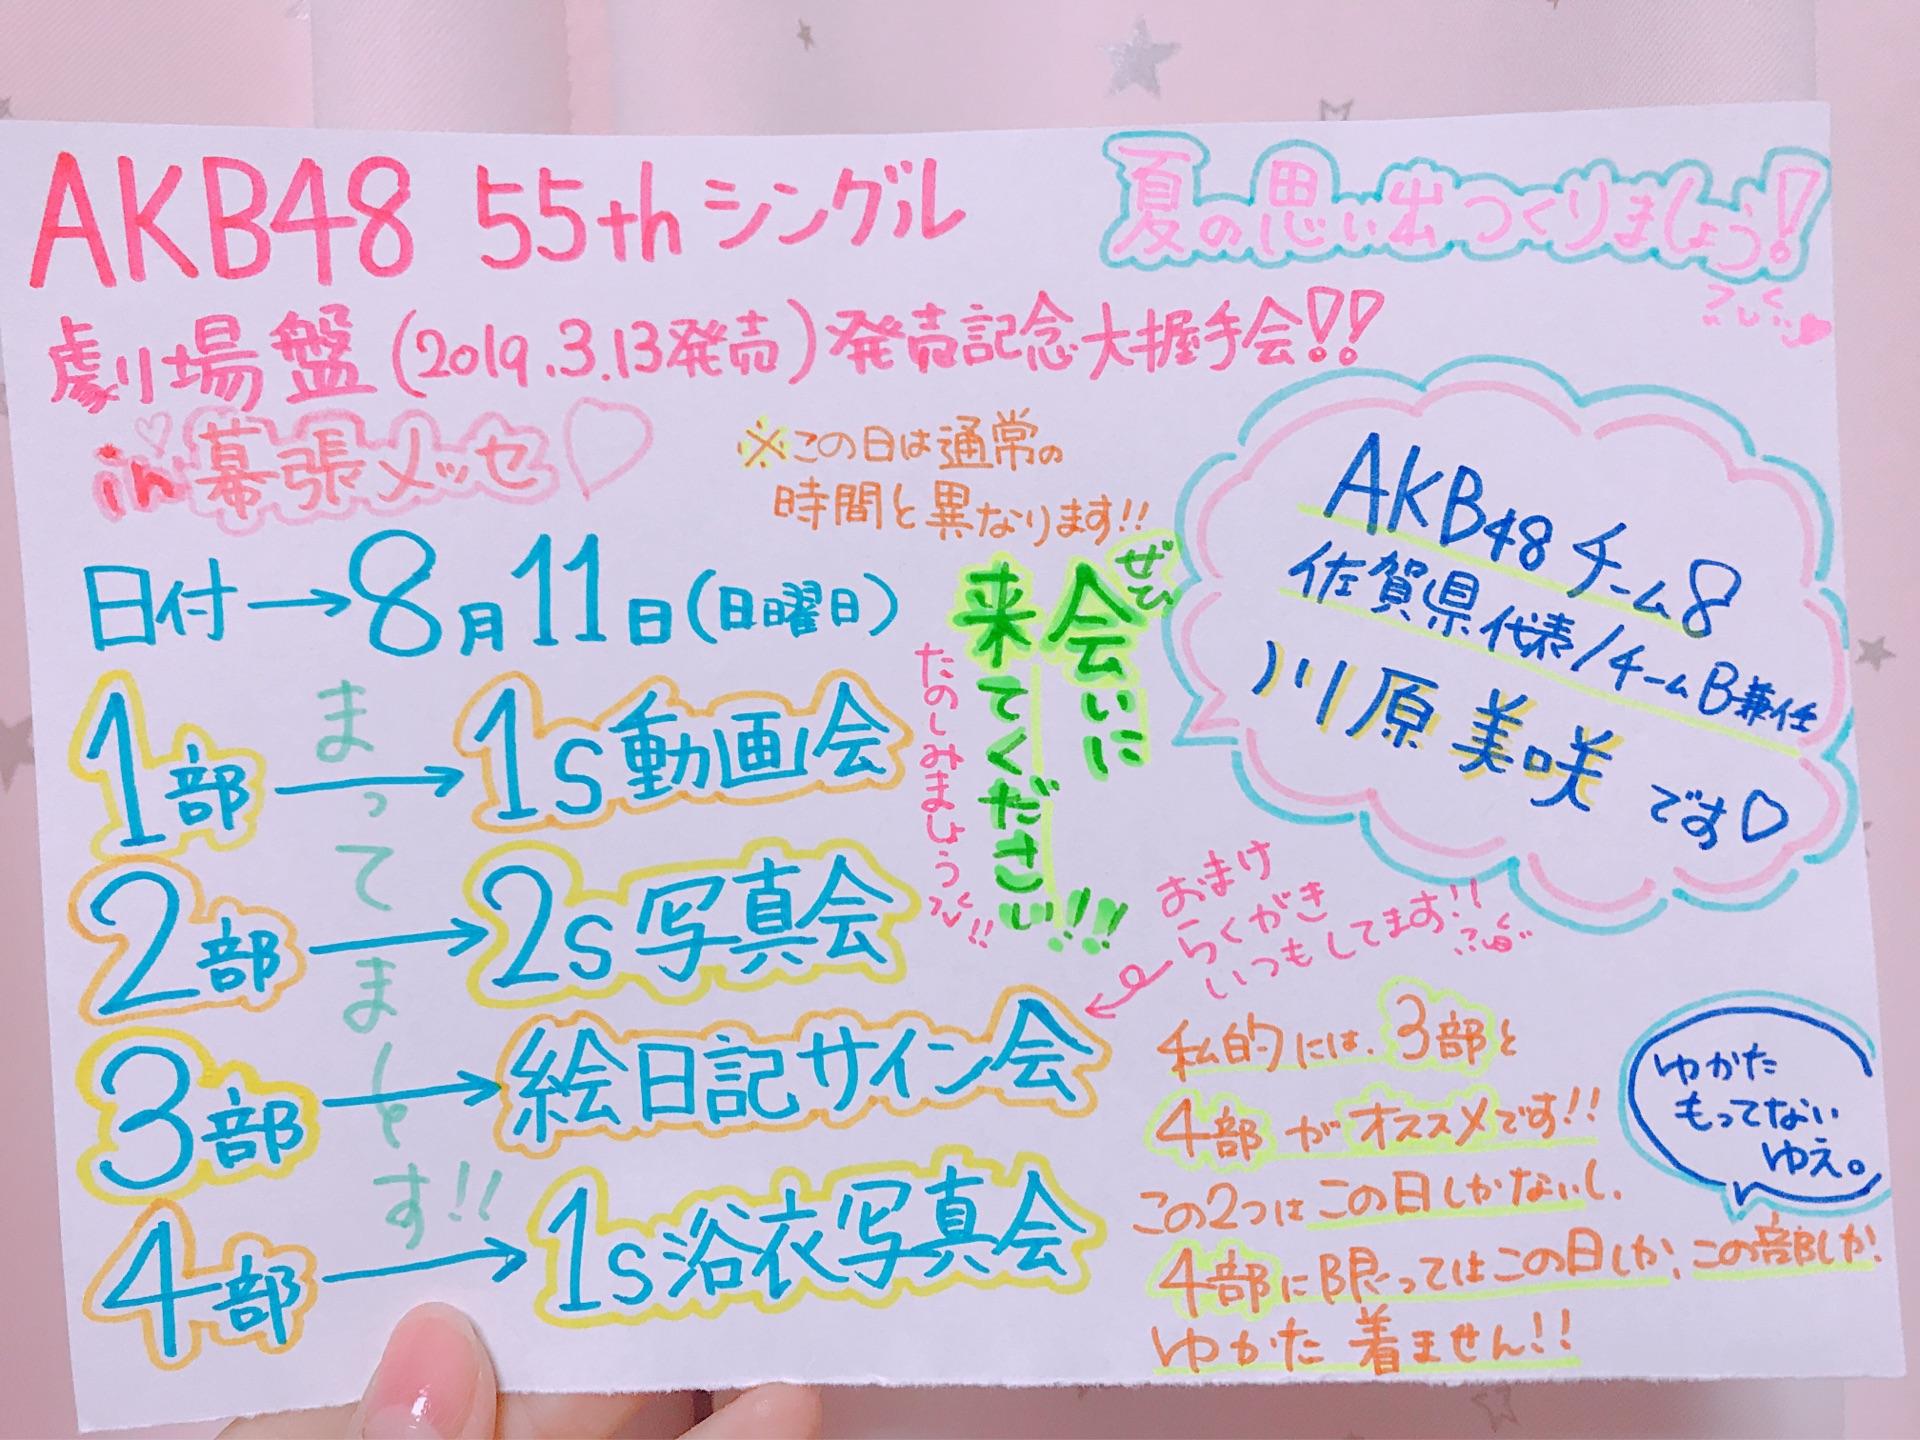 AKB48 55thシングル
夏の思い出つくりましょう!
劇場盤(2019.3.13発売)発売記念大握手会!!
in幕張メッセ♡
※この日は通常の
時間と異なります!!
日付→8月11日(日曜日)
1部→1s動画会
2部→2s写真会
3部→絵日記サイン会
4部→1s浴衣写真会
まってまーす!!
ぜひ
会いに
来てください!!
たのしみましょう
AKB48チーム8
佐賀県代表/チームB兼任
川原美咲です♡
おまけ
らくがき
いつもしてます!!
私的には、3部と
4部がオススメです!!
この2つはこの日しかないし、
4部に限ってはこの日しか、この部しか、
ゆかた着ません!!
ゆかた
もってない
ゆえ。